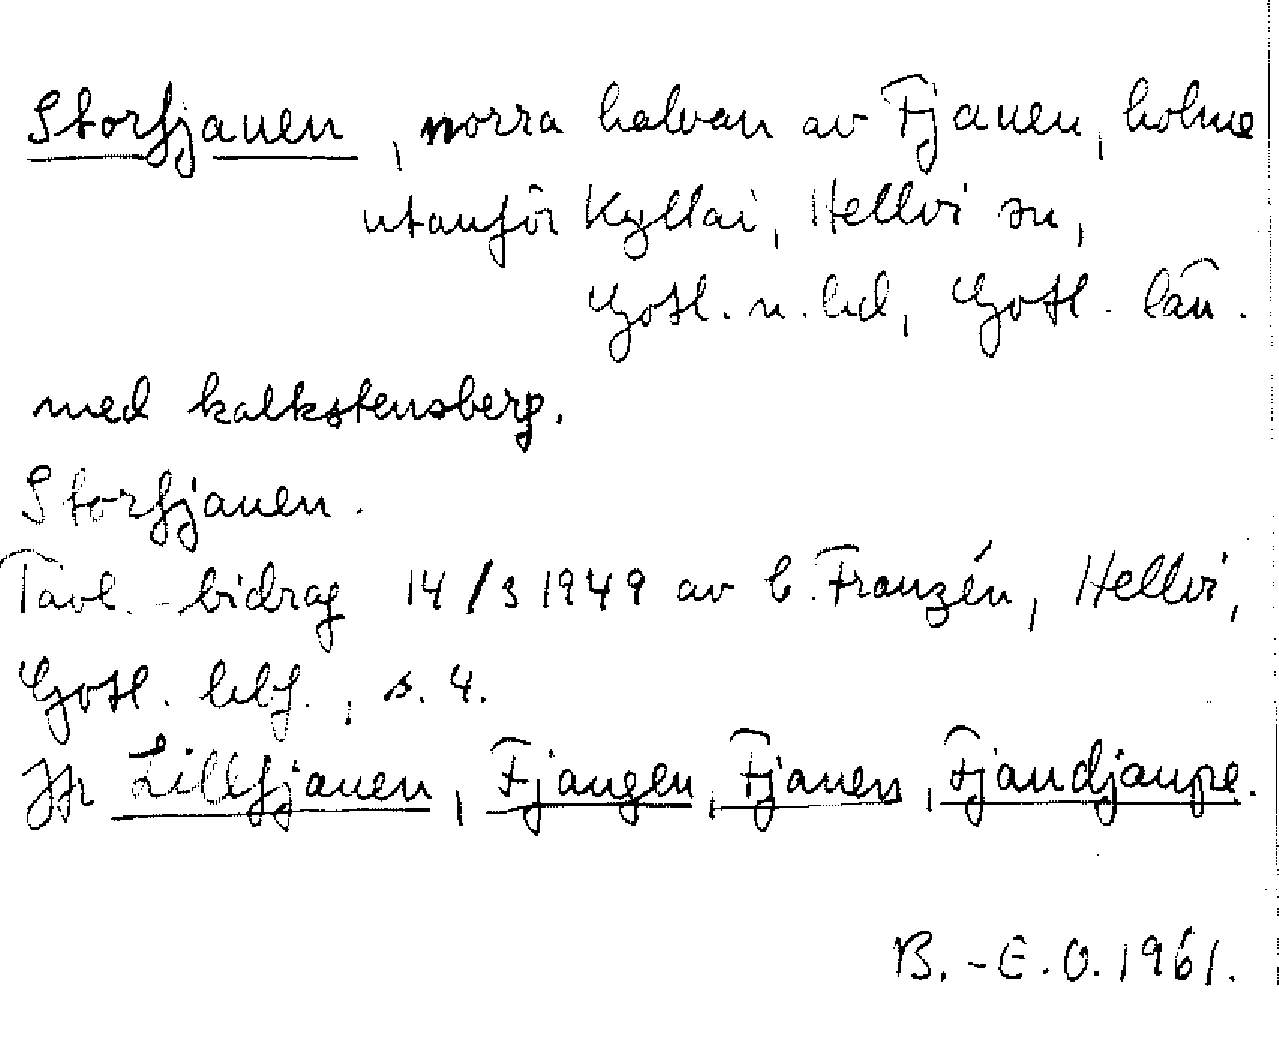 Storfjauen, norra halvan av Fjauen, holme
utanför Kyllai, Hellvi sn,
Gotl. n. hd, Gotl. län.
med kalkstensberg.
Storfjauen.
Tävl.-bidrag 14/3 1949 av C. Franzén, Hellvi,
Gotl. hbf., s. 4.
Jfr Lillfjauen, Fjaugen, Fjauen, Fjaudjaupe.
B.-E.O. 1961.